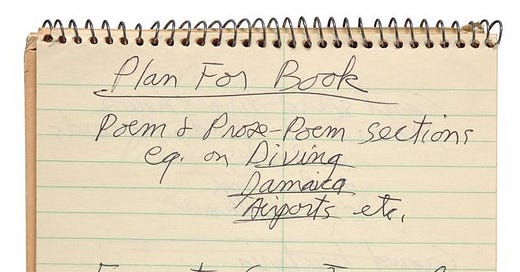 Plan For Book
Poem & Prose-Poem sections
eg. on Diving
Jamaica
Airports etc.